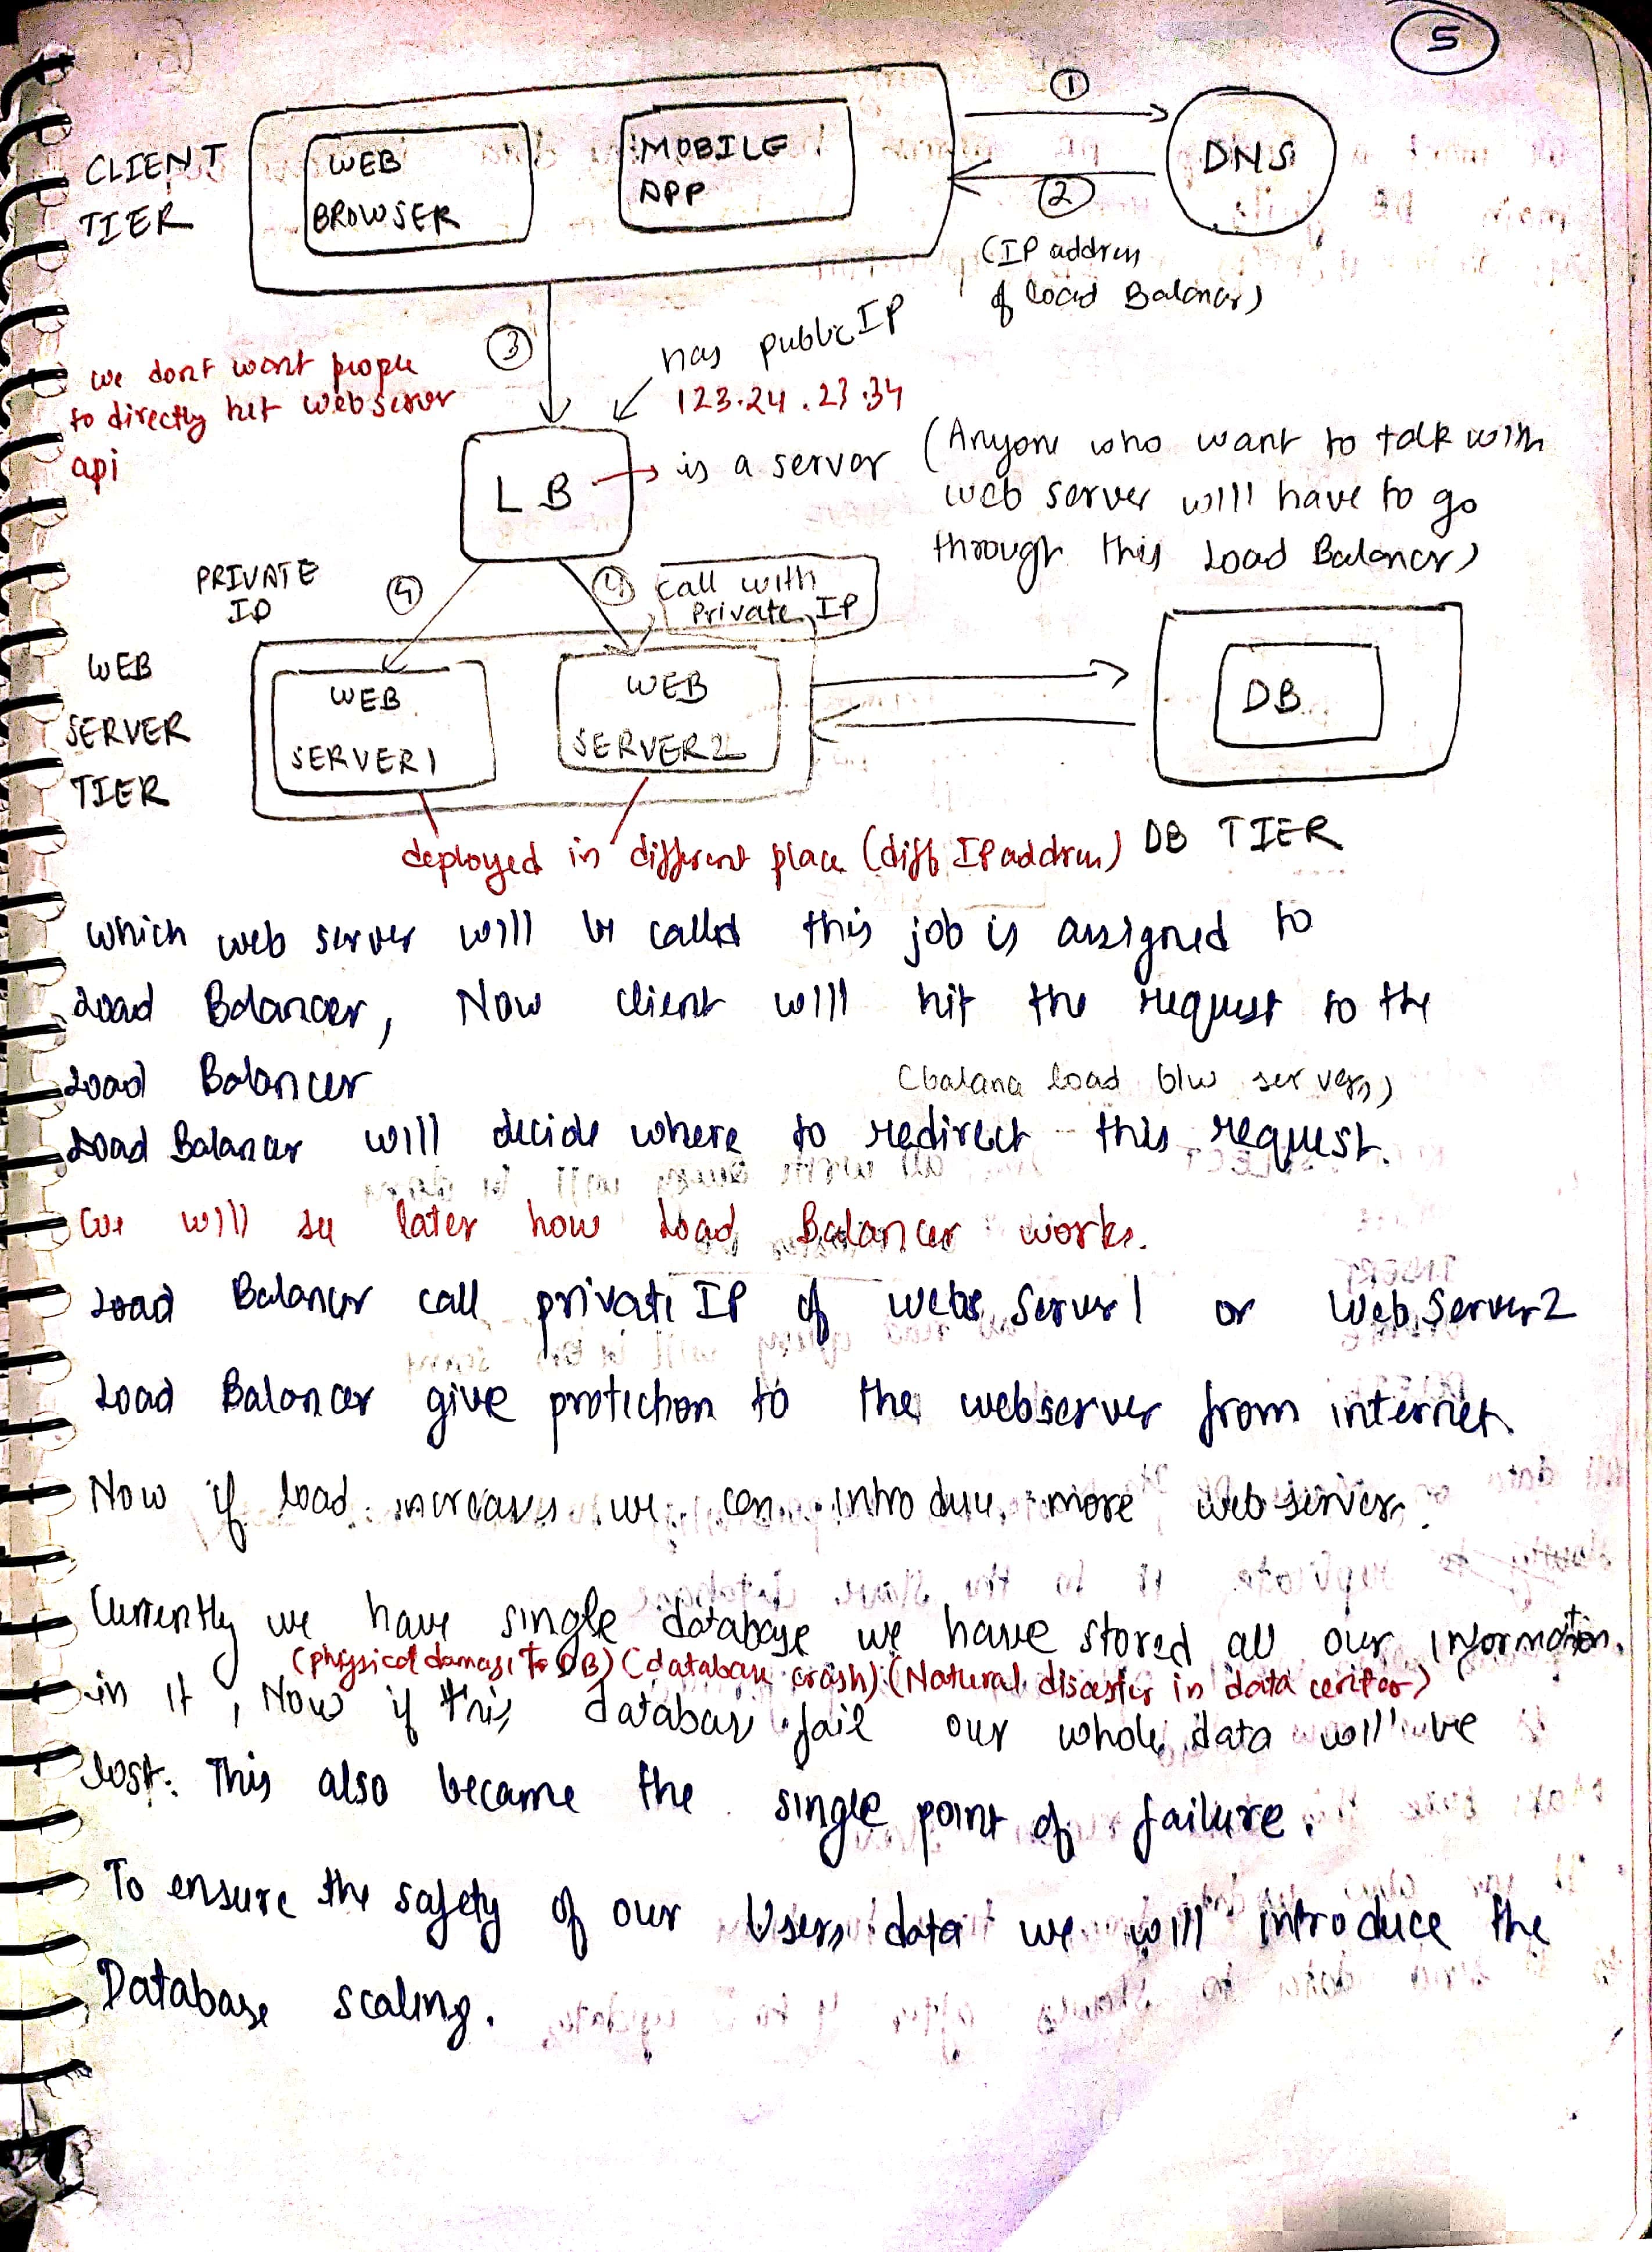 5
①
CLIENT TIER
WEB BROWSER
MOBILE APP
DNS
②
(IP address
of load Balancer)
③
has public IP
123.24.23.34
we dont want people
to directly hit web server
api
LB
is a server
(Anyone who want to talk with
web server will have to go
through this Load Balancer)
PRIVATE
IP
④
④
call with
Private IP
WEB
SERVER
TIER
WEB
SERVER1
WEB
SERVER2
DB
deployed in different place (diff IP address)
DB TIER
which web server will be called this job is assigned to
Load Balancer, Now client will hit the request to the
Load Balancer
(balance load b/w servers)
Load Balancer will decide where to redirect this request.
we will see later how Load Balancer works.
Load Balancer call private IP of web server1 or Web Server2
Load Balancer give protection to the webserver from internet.
Now if load increases we can introduce more web servers.
Currently we have single database we have stored all our information
(physical damage to DB) (database crash) (Natural disaster in data center)
in it, Now if this database fail our whole data will be
lost. This also became the single point of failure.
To ensure the safety of our Users data we will introduce the
Database scaling.